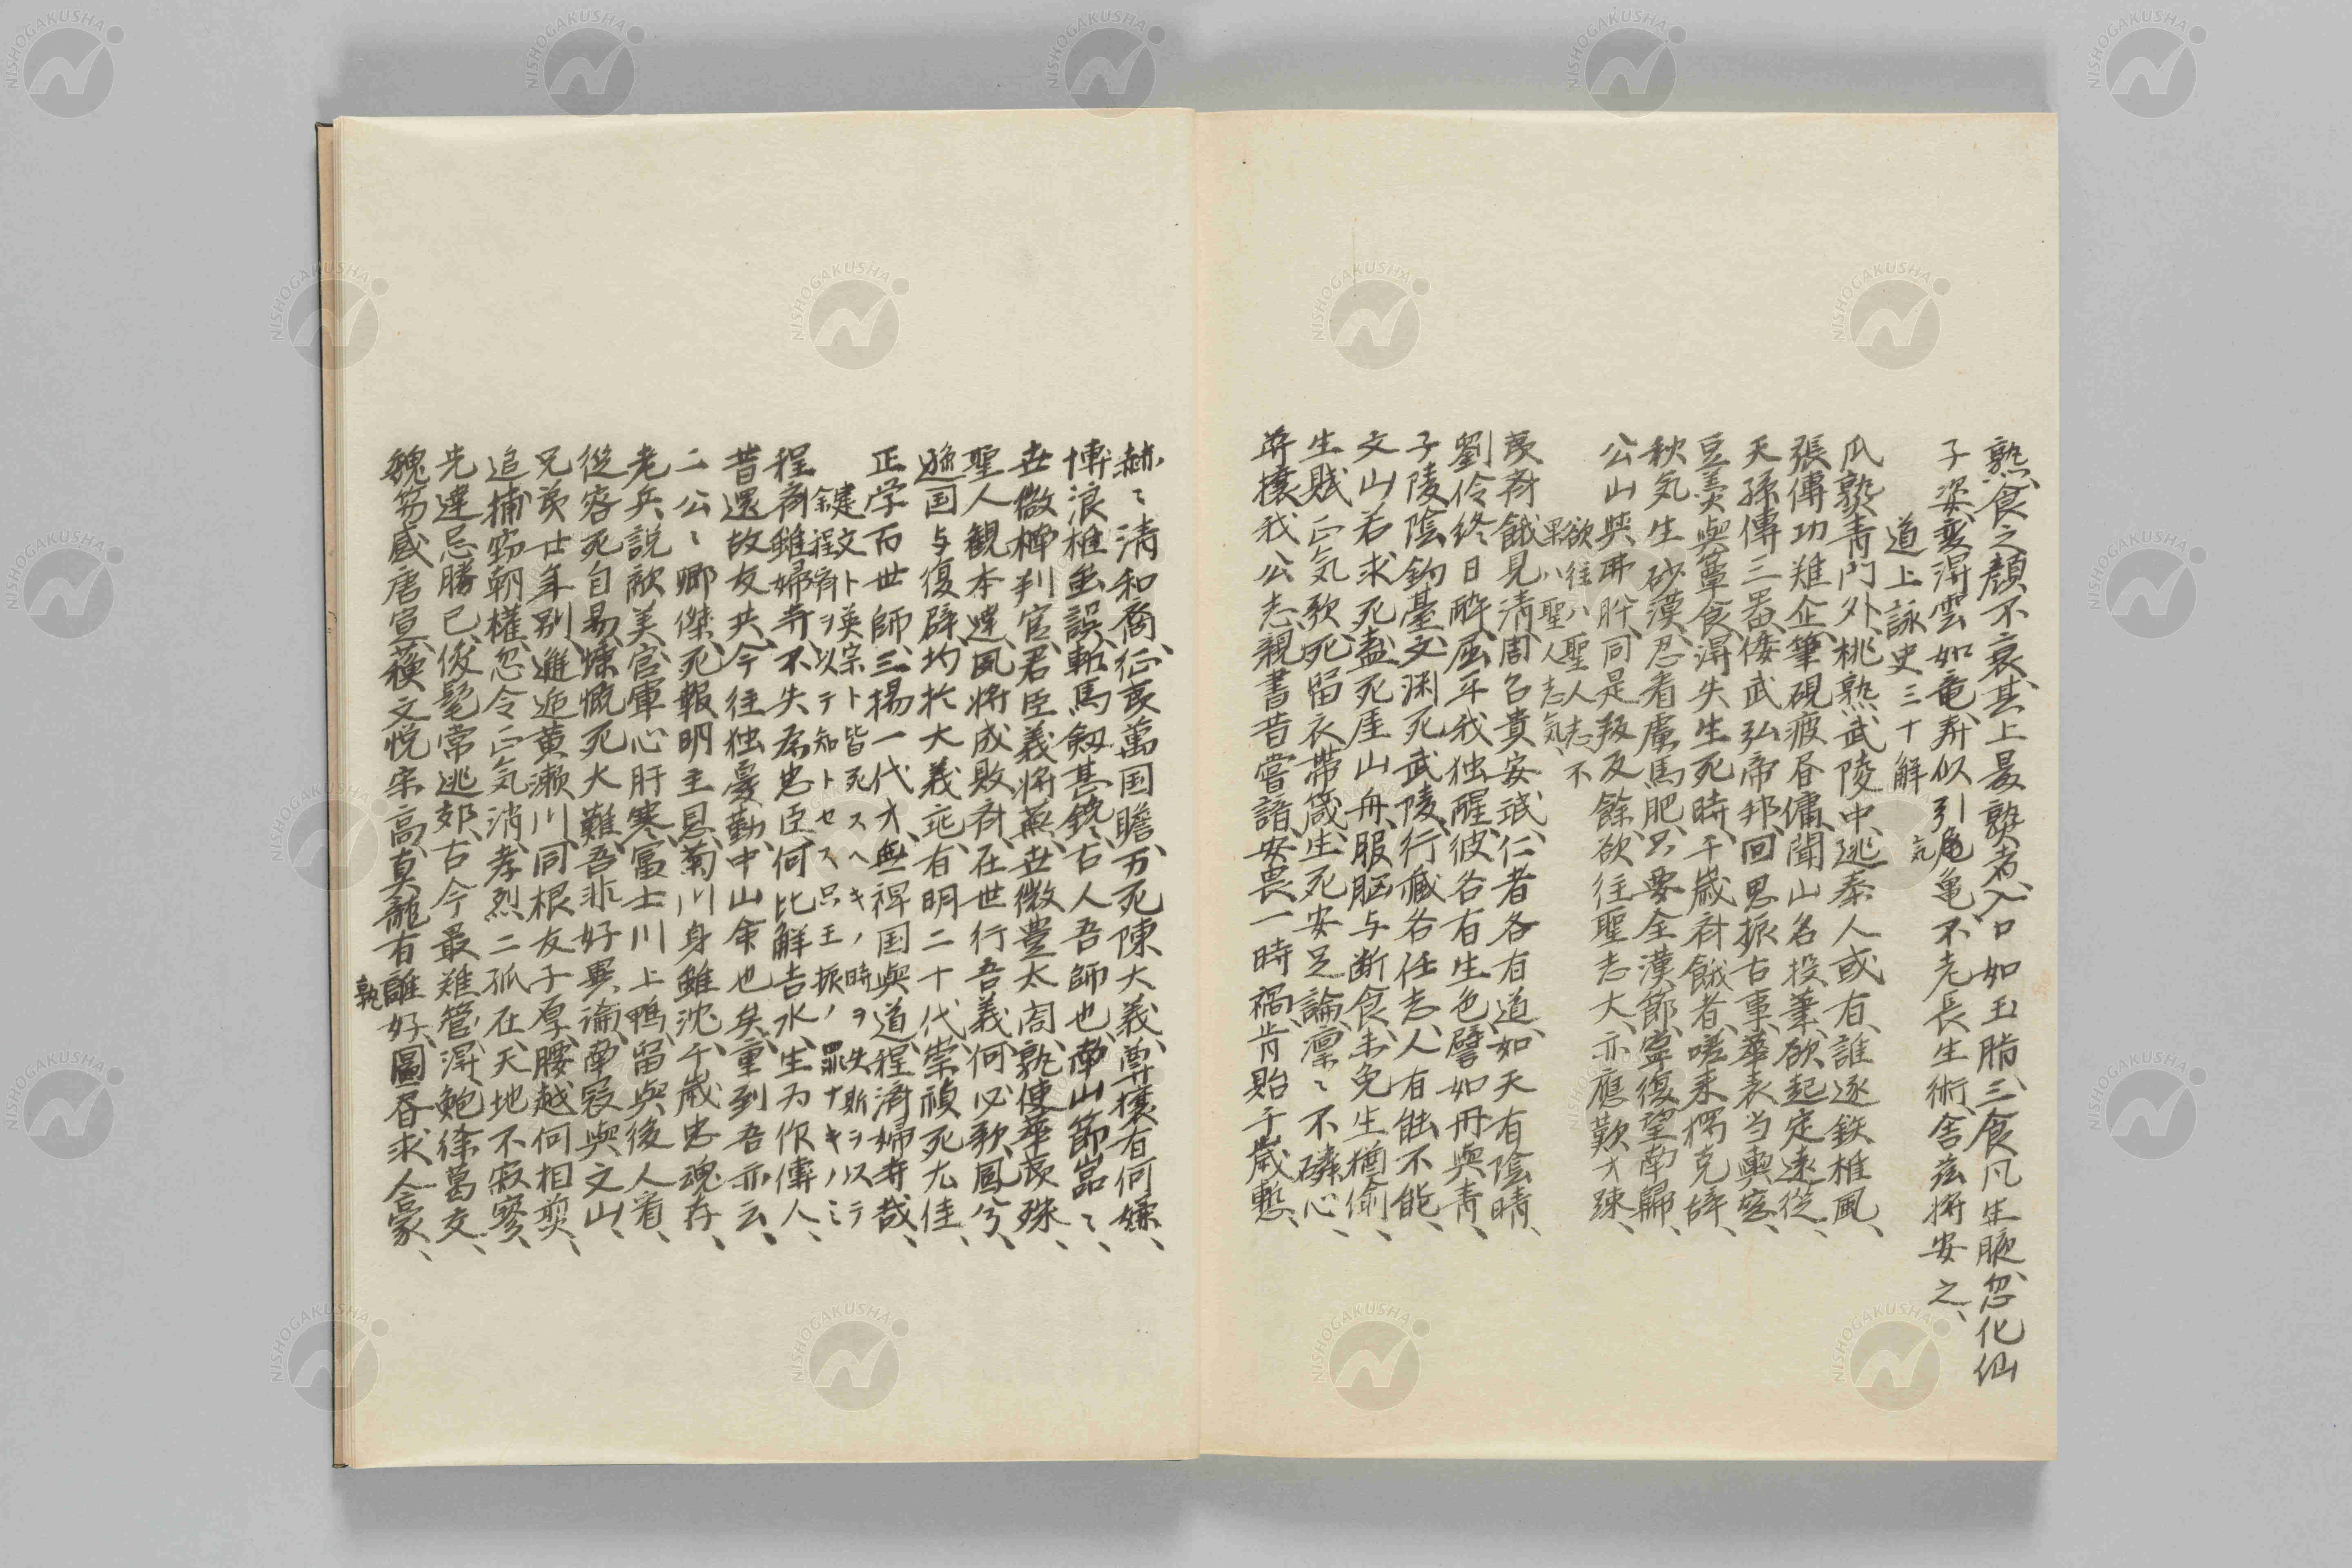 熟食之顏不衰其上曼熟者入口如玉脂三食凡生腴忽化仙
子姿変得雲如竜弄似引亀不老長生術舎茲将安之、
気
道上詠史三十解
瓜熟青門外桃熟武陵中、逃秦人或有、誰逐鉄椎風、
張傳功難企、筆硯疲昏傭、聞山名投筆、欲起定遠従、
天孫傳三器、倭武弘帝邦、回思振古事、華表当輿窓、
豆羹與簞食、得失生死時、千歳斉餓者、嗟来悌克辞、
秋気生砂漠、忍看虜馬肥、只要全漢節、寧復望南歸、
公山與弗肸、同是叛反餘、欲往聖志大、亦應歎才踈、
欲往ハ聖人志不
果ハ聖人志気、
夷斉餓見清、周召貴安泯、仁者各有道、如天有陰晴、
劉伶終日酔、屈平我独醒、彼各有生色、譬如丹與青、
子陵陰釣臺、文渊死武陵、行蔵各任志、人有能不能、
文山若求死、盍死厓山舟、服脳与断食、未免生猶偷、
生賎正気歌、死留衣帯箴、生死安足論、凛〻不磷心、
尊攘我公志、親書昔嘗諳、安畏一時禍、肯貽千歳慙、
赫〻清和裔、征夷萬国瞻、万死陳大義、尊攘有何嫌、
博浪椎虽誤、斬馬剱甚鋭、古人吾師也、南山節嵓〻、
世微樺判官、君臣義将蕪、世微豊太閤、孰使華夷殊、
聖人観本違、風将成敗斉、在世行吾義、何必歌鳳兮、
遜国与復辟、均於大義乖、有明二十代、崇禎死尤佳、
正学百世師、三揚一代才、無裨国與道、程済婦寺哉、
鍵文ト英宗ト皆死スヘキノ時ヲ失斯ヲ以テ
程斉ヲ以テ知トセス只王振ノ罪ナキノミ
程斉雖婦寺、不失為忠臣、何比解吉水、生为作傳人、
昔還故友共、今往独憂勤、中山命也矣、重到吾亦云、
二公〻郷傑、死報明主恩、菊川身雖沈、千歳忠魂存、
老兵説敵美、官軍心肝寒、富士川上鴨、留與後人看、
従容死自易、慷慨死大難、吾非好異論、南冦與文山、
兄弟廿年別、邂逅黄瀬川、同根友子厚、腰越何相剪、
追捕窃朝權、忽令正気消、孝烈二孤在、天地不寂寥、
先達忌勝己、俊髦常逃郊、古今最難管、得鮑徐葛交、
魏笏感唐宣、蘓文悦宋高、真龍有誰好、圖昏求人豪、
孰